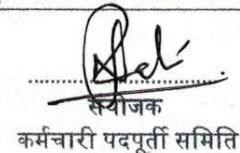 संयोजक
कर्मचारी पदपूर्ती समिति